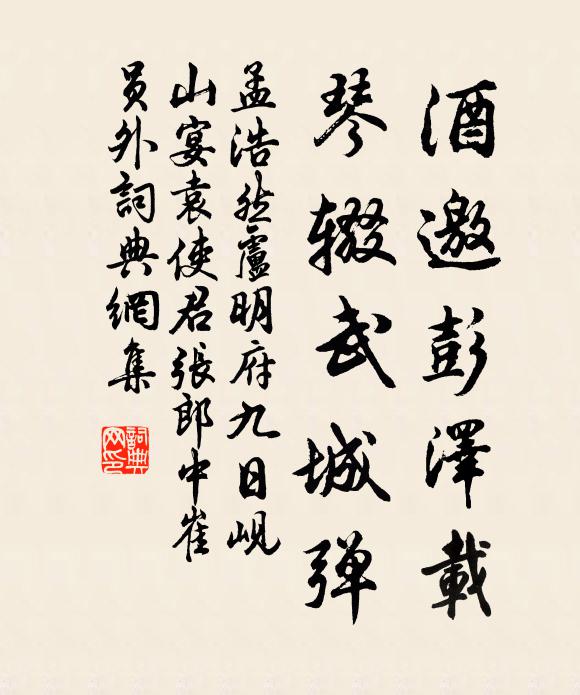 酒邀彭澤載
琴辍武城弹
孟浩然盧明府九日峴
山宴袁使君張郎中崔
員外詞典網集
詞典
网印